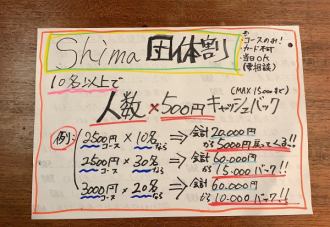 Shima 団体割
※
・コースのみ!
・カード不可
・当日OK
(要相談)
10名以上で
(MAX 15000まで)
人数×500円キャッシュバック
例) 2500円コース × 10名なら ⇒ 合計 20.000から 5000円戻ってくる!!
2500円コース × 30名なら ⇒ 合計 60.000から 15.000バック!!
3000円コース × 20名なら ⇒ 合計 60.000から 10.000バック!!